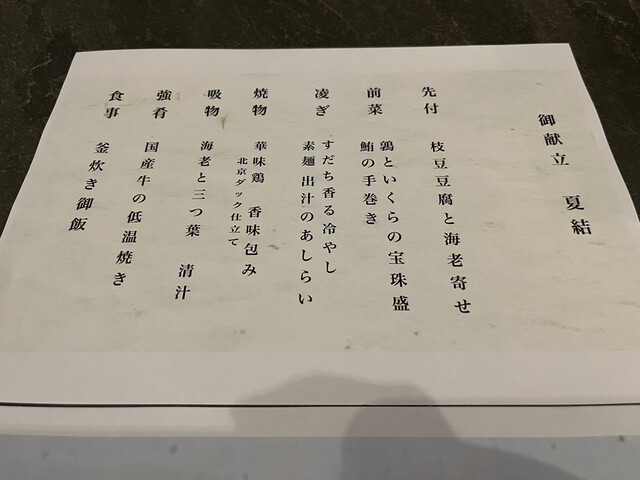 御献立 夏結
先付 枝豆豆腐と海老寄せ
前菜 鶉といくらの宝珠盛
鮪の手巻き
凌ぎ すだち香る冷やし
素麺出汁のあしらい
焼物 華味鶏 香味包み
北京ダック仕立て
吸物 海老と三つ葉 清汁
強肴 国産牛の低温焼き
食事 釜炊き御飯